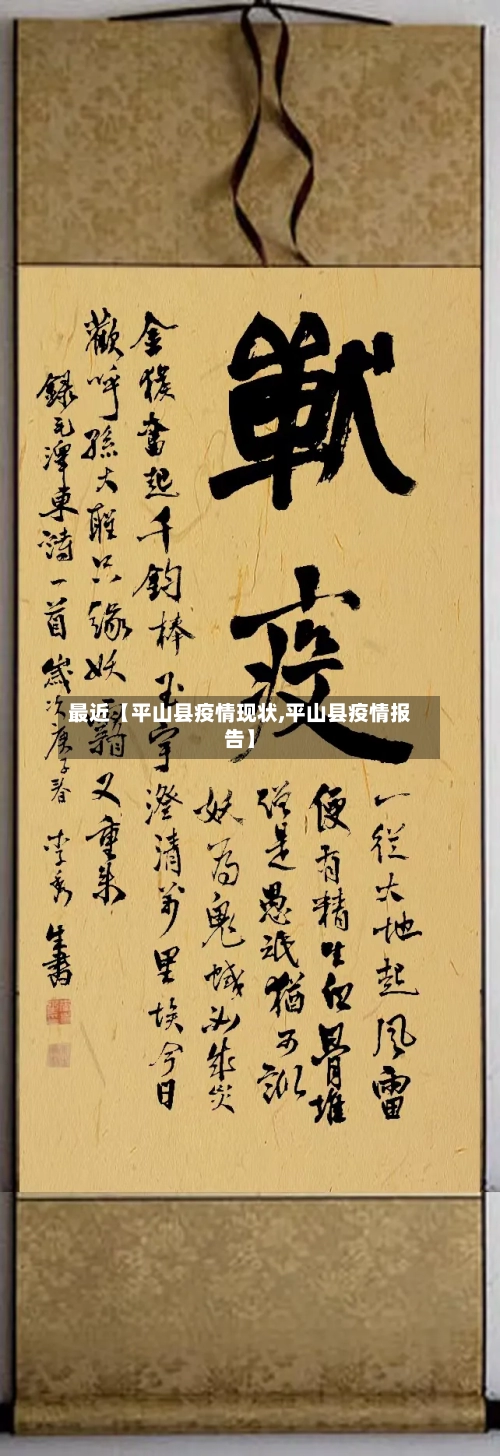 戰疫
一從大地起风雷
便有精生白骨堆
僧是愚氓猶可訓
妖為鬼蜮必成災
金猴奮起千鈞棒玉宇澄清萬里埃今日
歡呼孫大聖只緣妖霧又重來
錄毛澤東詩一首歲次庚子春李秀生書
最近【平山县疫情现状,平山县疫情报
告】